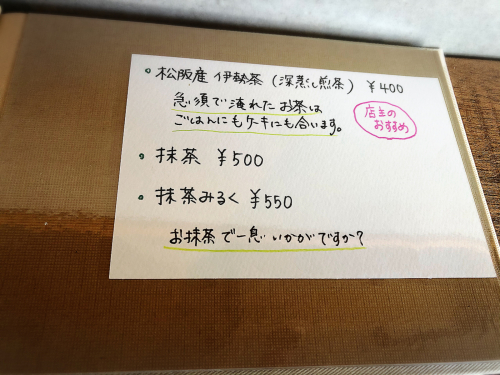 • 松阪産 伊勢茶 (深蒸し煎茶) ¥400
急須で淹れたお茶は
ごはんにもケーキにも合います。
店主の
おすすめ
• 抹茶 ¥500
• 抹茶みるく ¥550
お抹茶で一息いかがですか?